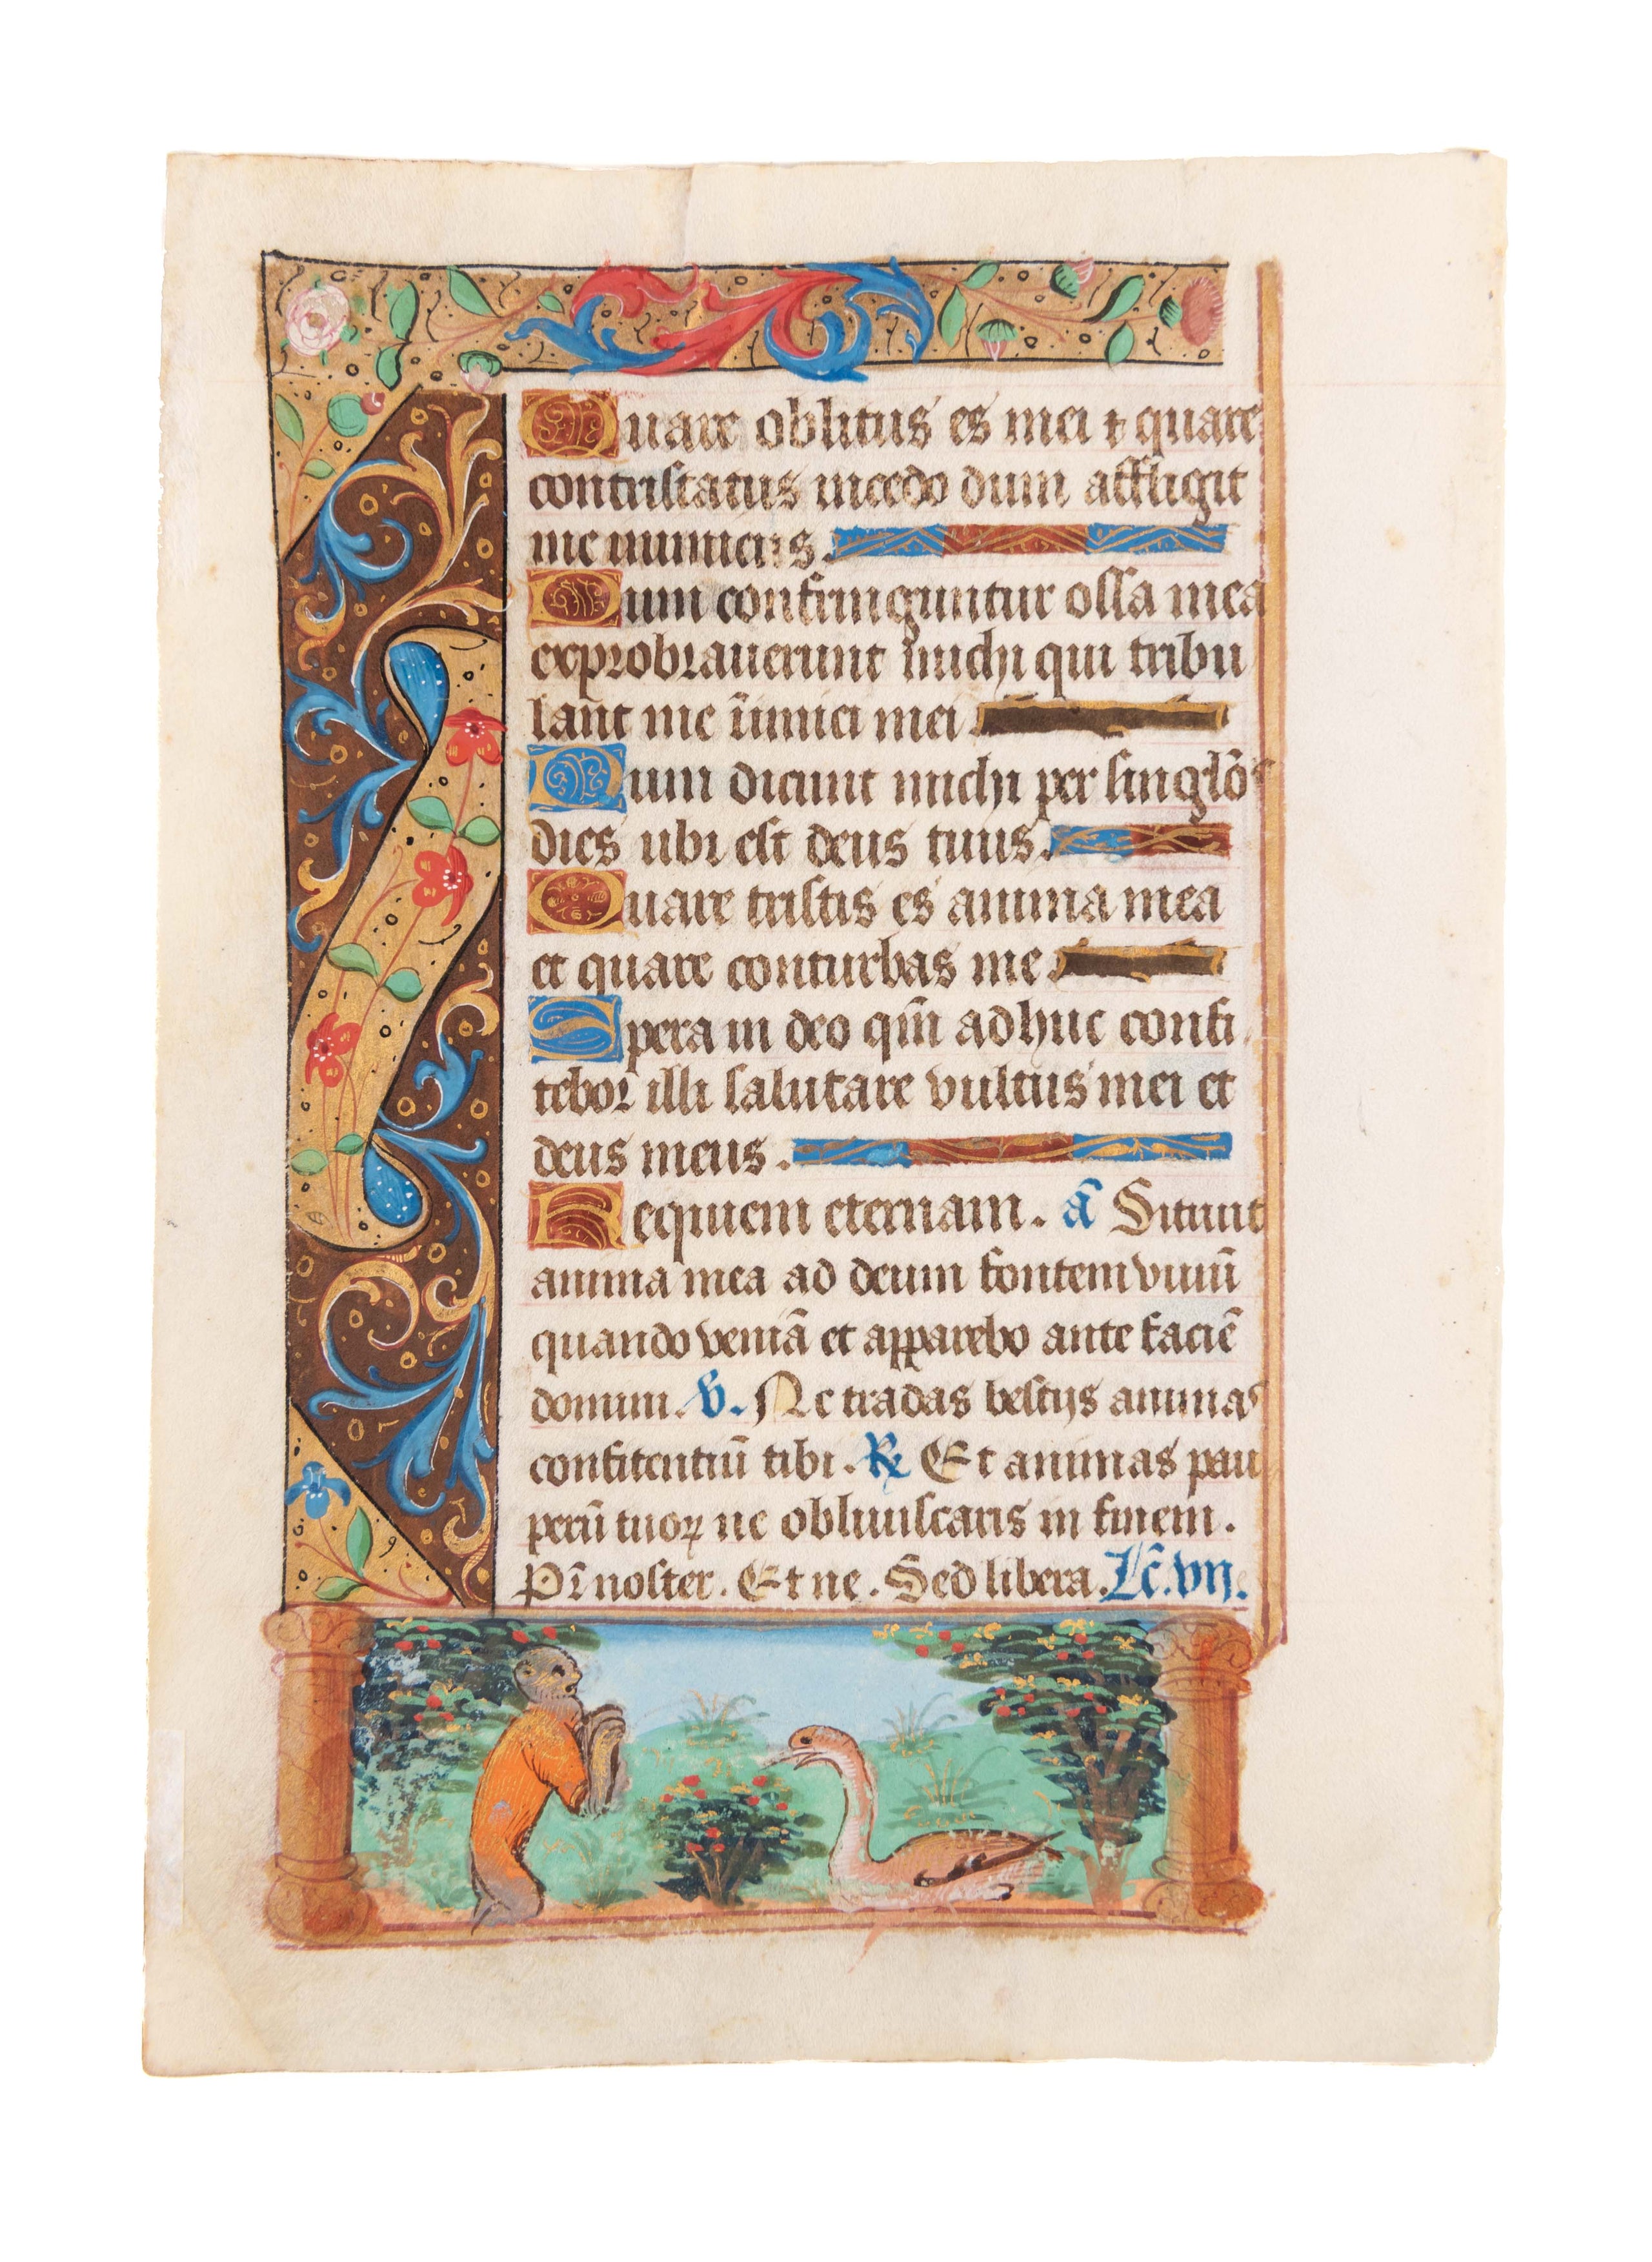 Quare oblitus es mei ⁊ quare
contristatus incedo dum affligit
me inimicus.
Dum confringuntur ossa mea
exprobrauerunt michi qui tribu
lant me inimici mei
Dum dicunt michi per singlōs
dies ubi est deus tuus.
Quare tristis es anima mea
et quare conturbas me
Spera in deo qm̄ adhuc confi
tebor illi salutare vultus mei et
deus meus.
Requiem eternam. a̅ Sitiuit
anima mea ad deum fontem viuū
quando veniā et apparebo ante faciē
domini. v̄. Ne tradas bestijs animas
confitentiū tibi. ℞ Et animas pau
perū tuoꝝ ne obliuiscaris in finem.
Pr̄ noster. Et ne. Sed libera. Lc̄. vij.